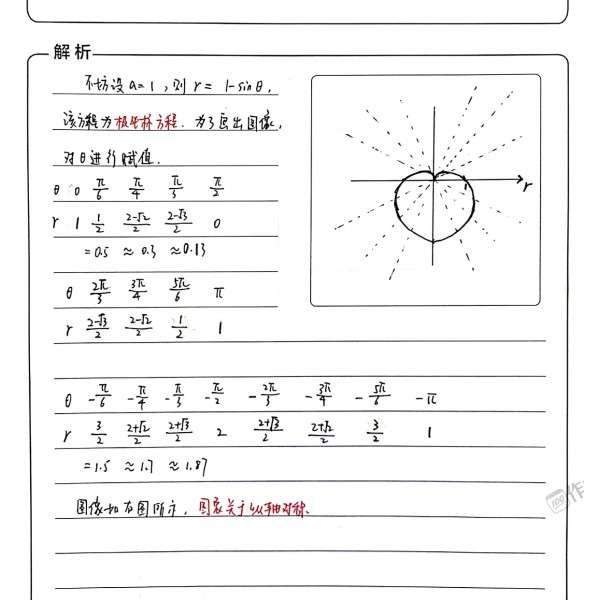 解析
不妨设 a=1，则 r= 1-sinθ，
该方程为极坐标方程. 为了画出图像，
对θ进行赋值.
θ 0 π/6 π/4 π/3 π/2
r 1 1/2 (2-√2)/2 (2-√3)/2 0
=0.5 ≈0.3 ≈0.13
θ 2π/3 3π/4 5π/6 π
r (2-√3)/2 (2-√2)/2 1/2 1
r
1
θ -π/6 -π/4 -π/3 -π/2 -2π/3 -3π/4 -5π/6 -π
r 3/2 (2+√2)/2 (2+√3)/2 2 (2+√3)/2 (2+√2)/2 3/2 1
=1.5 ≈1.7 ≈1.87
图像如右图所示，图象关于y轴对称.
100
作